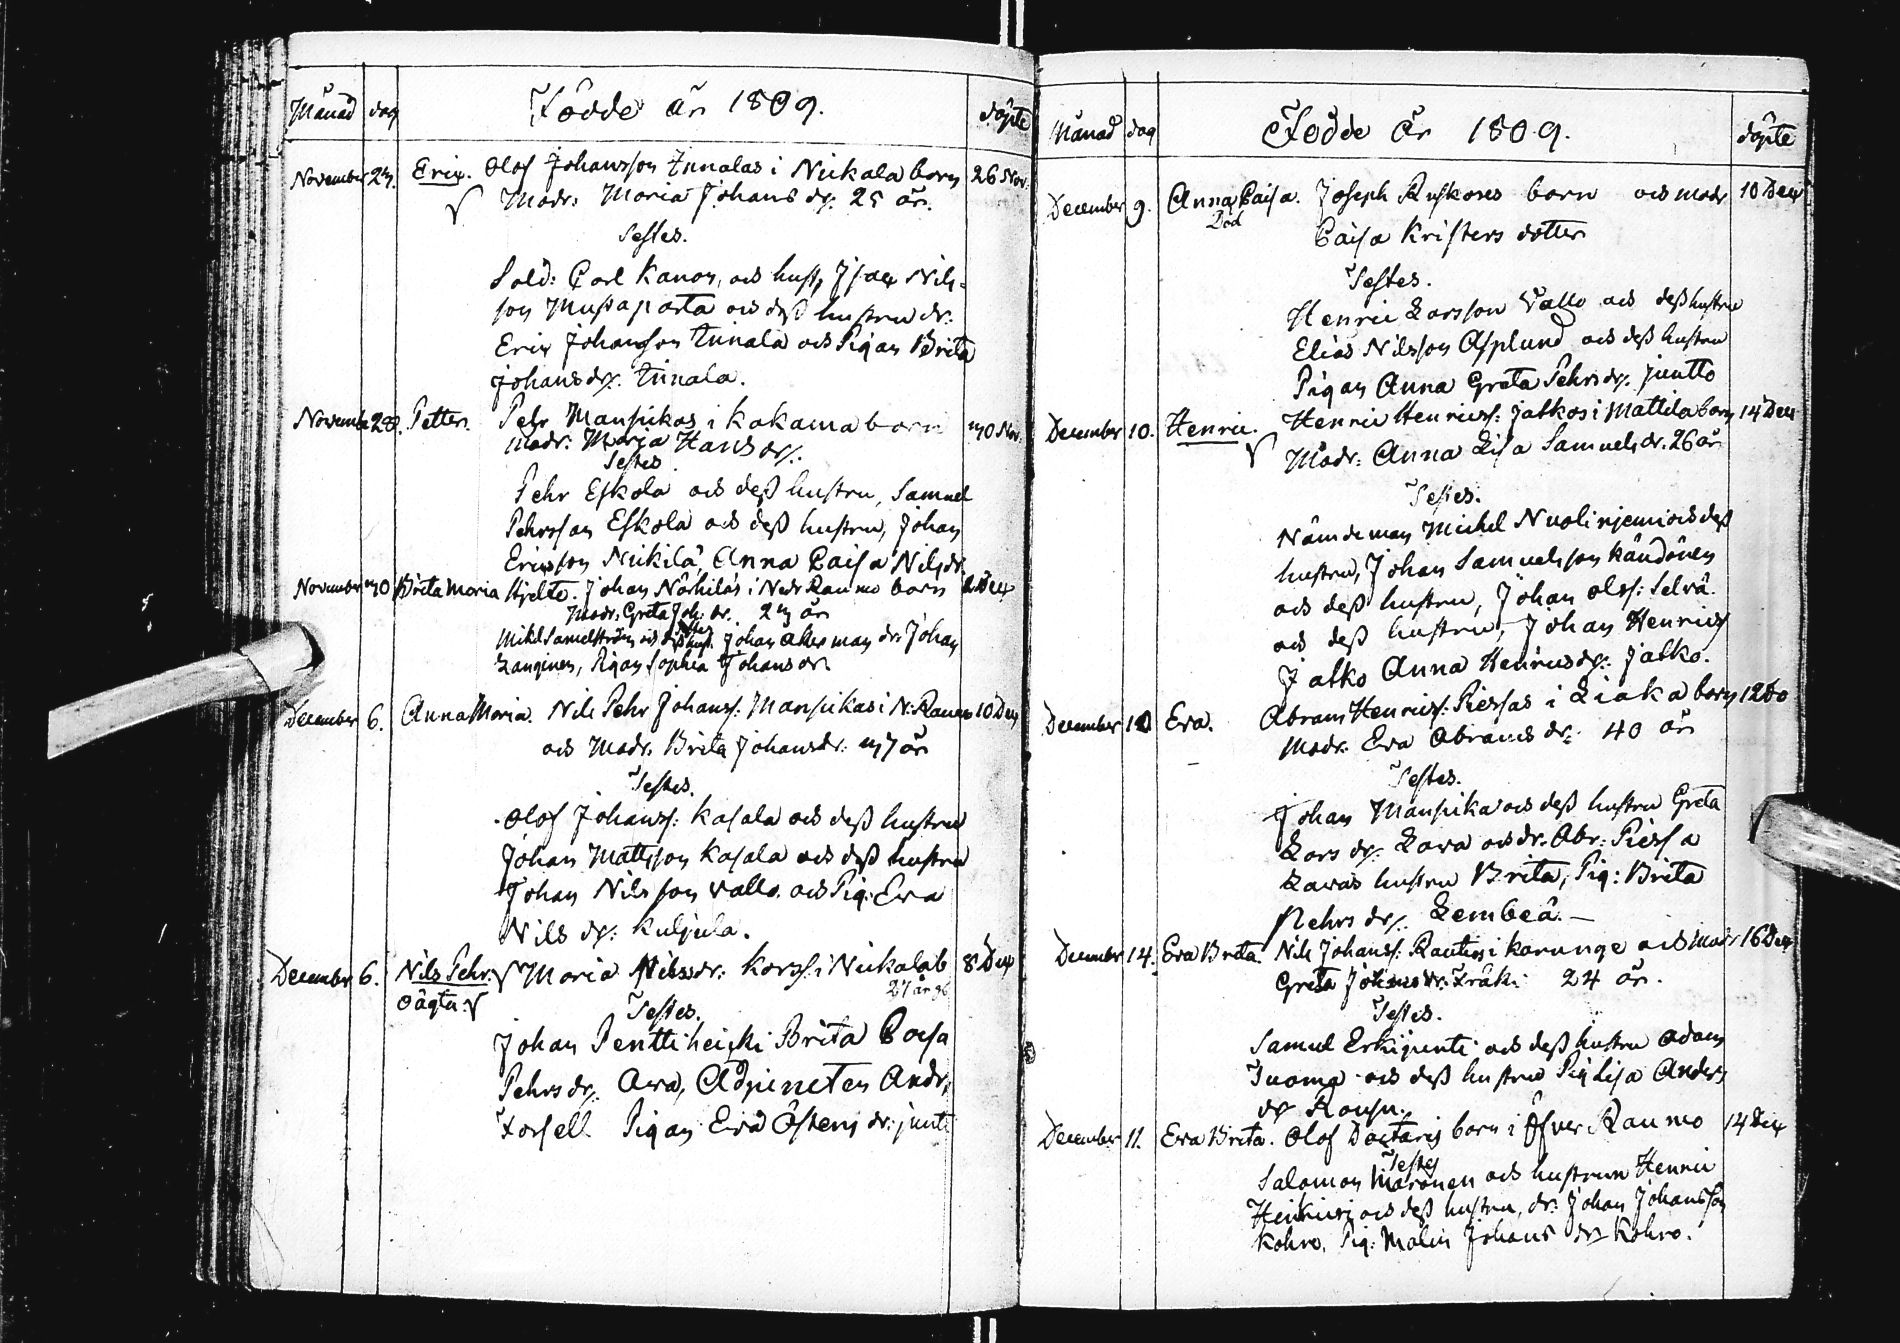 Månad dag Födde år 1809. döpte
November 23. Erix. Olof Johansson Tunnalas i Nickala born 26 Nov.
Modr: Maria Johans dr. 25 år.
Testes.
Sold: Carl Kanon, och hust, Isac Nils-
son Mustaparta och dess hustru dr:
Erix Johansson Tunnala och Pigan Brita
Johans dr. Tunnala.
Novembe 28. Petter. Pehr Mansikas i Kakama born 30 Nov.
Modr: Marja Hans dr.
Testes
Pehr Eskola och dess hustru, Samuel
Pehrsson Eskola och dess hustru, Johan
Ericsson Nikilä, Anna Caisa Nils dr.
November 30 Brita Maria Hjelte. Johan Närhiläs i Nedr Raumo born 2 Dec
Modr. Greta Joh. dr. 23 år
Testes
Mikel Samelström och dess hust. Johan Åkerman dr. Johan
Langinen, Pigan Sophia Johans dr.
December 6. Anna Maria. Nils Pehr Johanss: Mansikas i N: Raumo 10 Dec
och Modr. Brita Johans dr: 37 år
Testes.
Olof Johanss: Kasala och dess hustru
Johan Mattsson Kasala och dess hustru
Johan Nilsson Vallo. och Pig: Eva
Nils dr: Kuljula.
December 6. Nils Pehr. Maria Nils dr: Korss: i Nickala b 8 Dec
oägta. 27 år gl
Testes.
Johan Penttiheicki Brita Caisa
Pehrs dr. Ava, Adjuncten Andr.
Forsell Pigan Eva Östens dr: junti
Månad dag Födde År 1809. döpte
December 9. Anna Caisa. Joseph Ruskones born och modr 10 Dec
Död
Caisa Kristers dotter
Testes.
Henric Larsson Vallo och dess hustru
Elias Nilsson Asplund och dess hustru
Pigan Anna Greta Pehrs dr. juntto
December 10. Henric. Henric Henricss: Jatkos i Mattila born 14 Dec
Modr: Anna Lisa Samuels dr. 26 år
Testes.
Nämdeman Mickel Nuoliniemi och dess
hustru, Johan Samuelsson Kändönen
och dess hustru, Johan Olss: Selvä.
och dess hustru, Johan Henrics
Jatko Anna Henrics dr: Jatko.
December 10 Eva. Abram Henricss: Piessas i Liaka born 12 Do
Modr. Eva Abrams dr: 40 år
Testes.
Johan Mansika och dess hustru Greta
Lars dr. Lava och dr. Abr: Piessa
Lavas hustru Brita, Pig: Brita
Pehrs dr. Lembeä.
December 14. Eva Brita. Nils Johanss: Rautios i Karunge och Modr 16 Dec
Greta Johans dr: Fräki 24 år.
Testes.
Samuel Erkipenti och dess hustru Adam
Tuoma och dess hustru Pig Lisa Anders
dr Rousu.
December 11. Eva Brita. Olof Dactaris born i Öfver Raumo 14 Dec
Testes
Salomon Maronen och hustrun Henric
Heikuri och dess hustru, dr: Johan Johansson
Kohro. Pig: Malin Johans dr Kohro.